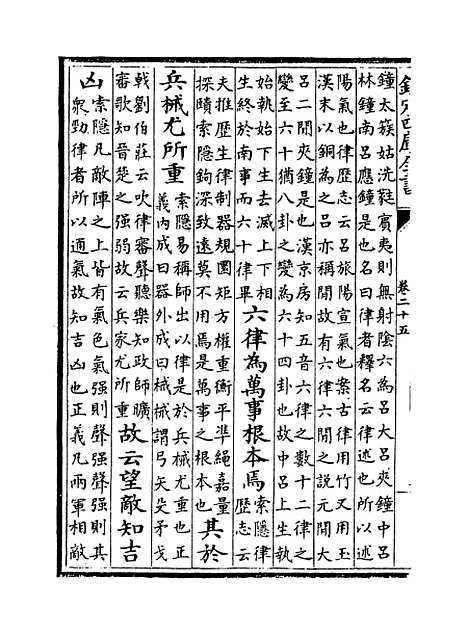 欽定四庫全書
卷二十五
鐘太簇姑洗蕤賓夷則無射陰六為呂大呂夾鐘中呂
林鐘南呂應鐘是也名曰律者釋名云律述也所以述
陽氣也律歷志云呂旅陽宣氣也案古律用竹又用玉
漢末以銅為之呂亦稱間故有六律六間之說元間大
呂二間夾鐘是也漢京房知五音六律之數十二律之
變至六十猶八卦之變為六十四卦也故中呂上生執
始執始下生去滅上下相
生終於南事而六十律畢
六律為萬事根本焉
索隱律
歷志云
夫推歷生律制器規圜矩方權重衡平準繩嘉量
探賾索隱鉤深致遠莫不用焉是萬事之根本也
其於
兵械尤所重
索隱易稱師出以律是於兵械尤重也正
義内成曰器外成曰械械謂弓矢殳矛戈
戟劉伯莊云吹律審聲聽樂知政師曠
審歌知晉楚之强弱故云兵家尤所重
故云望敵知吉
凶
索隱凡敵陣之上皆有氣色氣强則聲强聲强則其
衆勁律者所以通氣故知吉凶也正義凡兩軍相敵